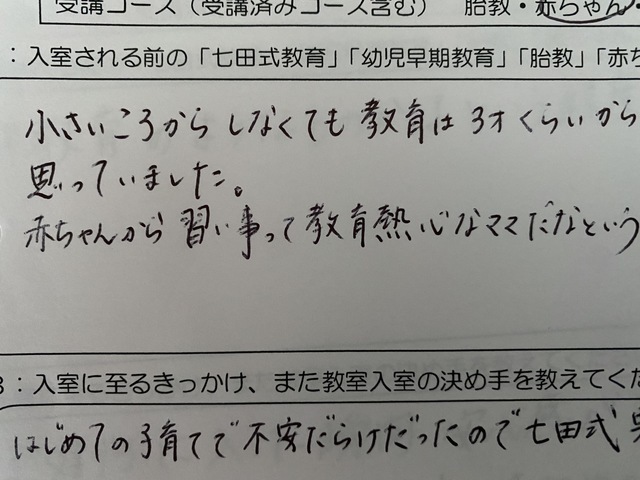 受講コース（受講済みコース含む） 胎教・赤ちゃん・
：入室される前の「七田式教育」「幼児早期教育」「胎教」「赤ち
小さいころからしなくても教育は3才くらいから
思っていました。
赤ちゃんから習い事って教育熱心なママだなという
3：入室に至るきっかけ、また教室入室の決め手を教えてくだ
はじめての子育てで不安だらけだったので七田式